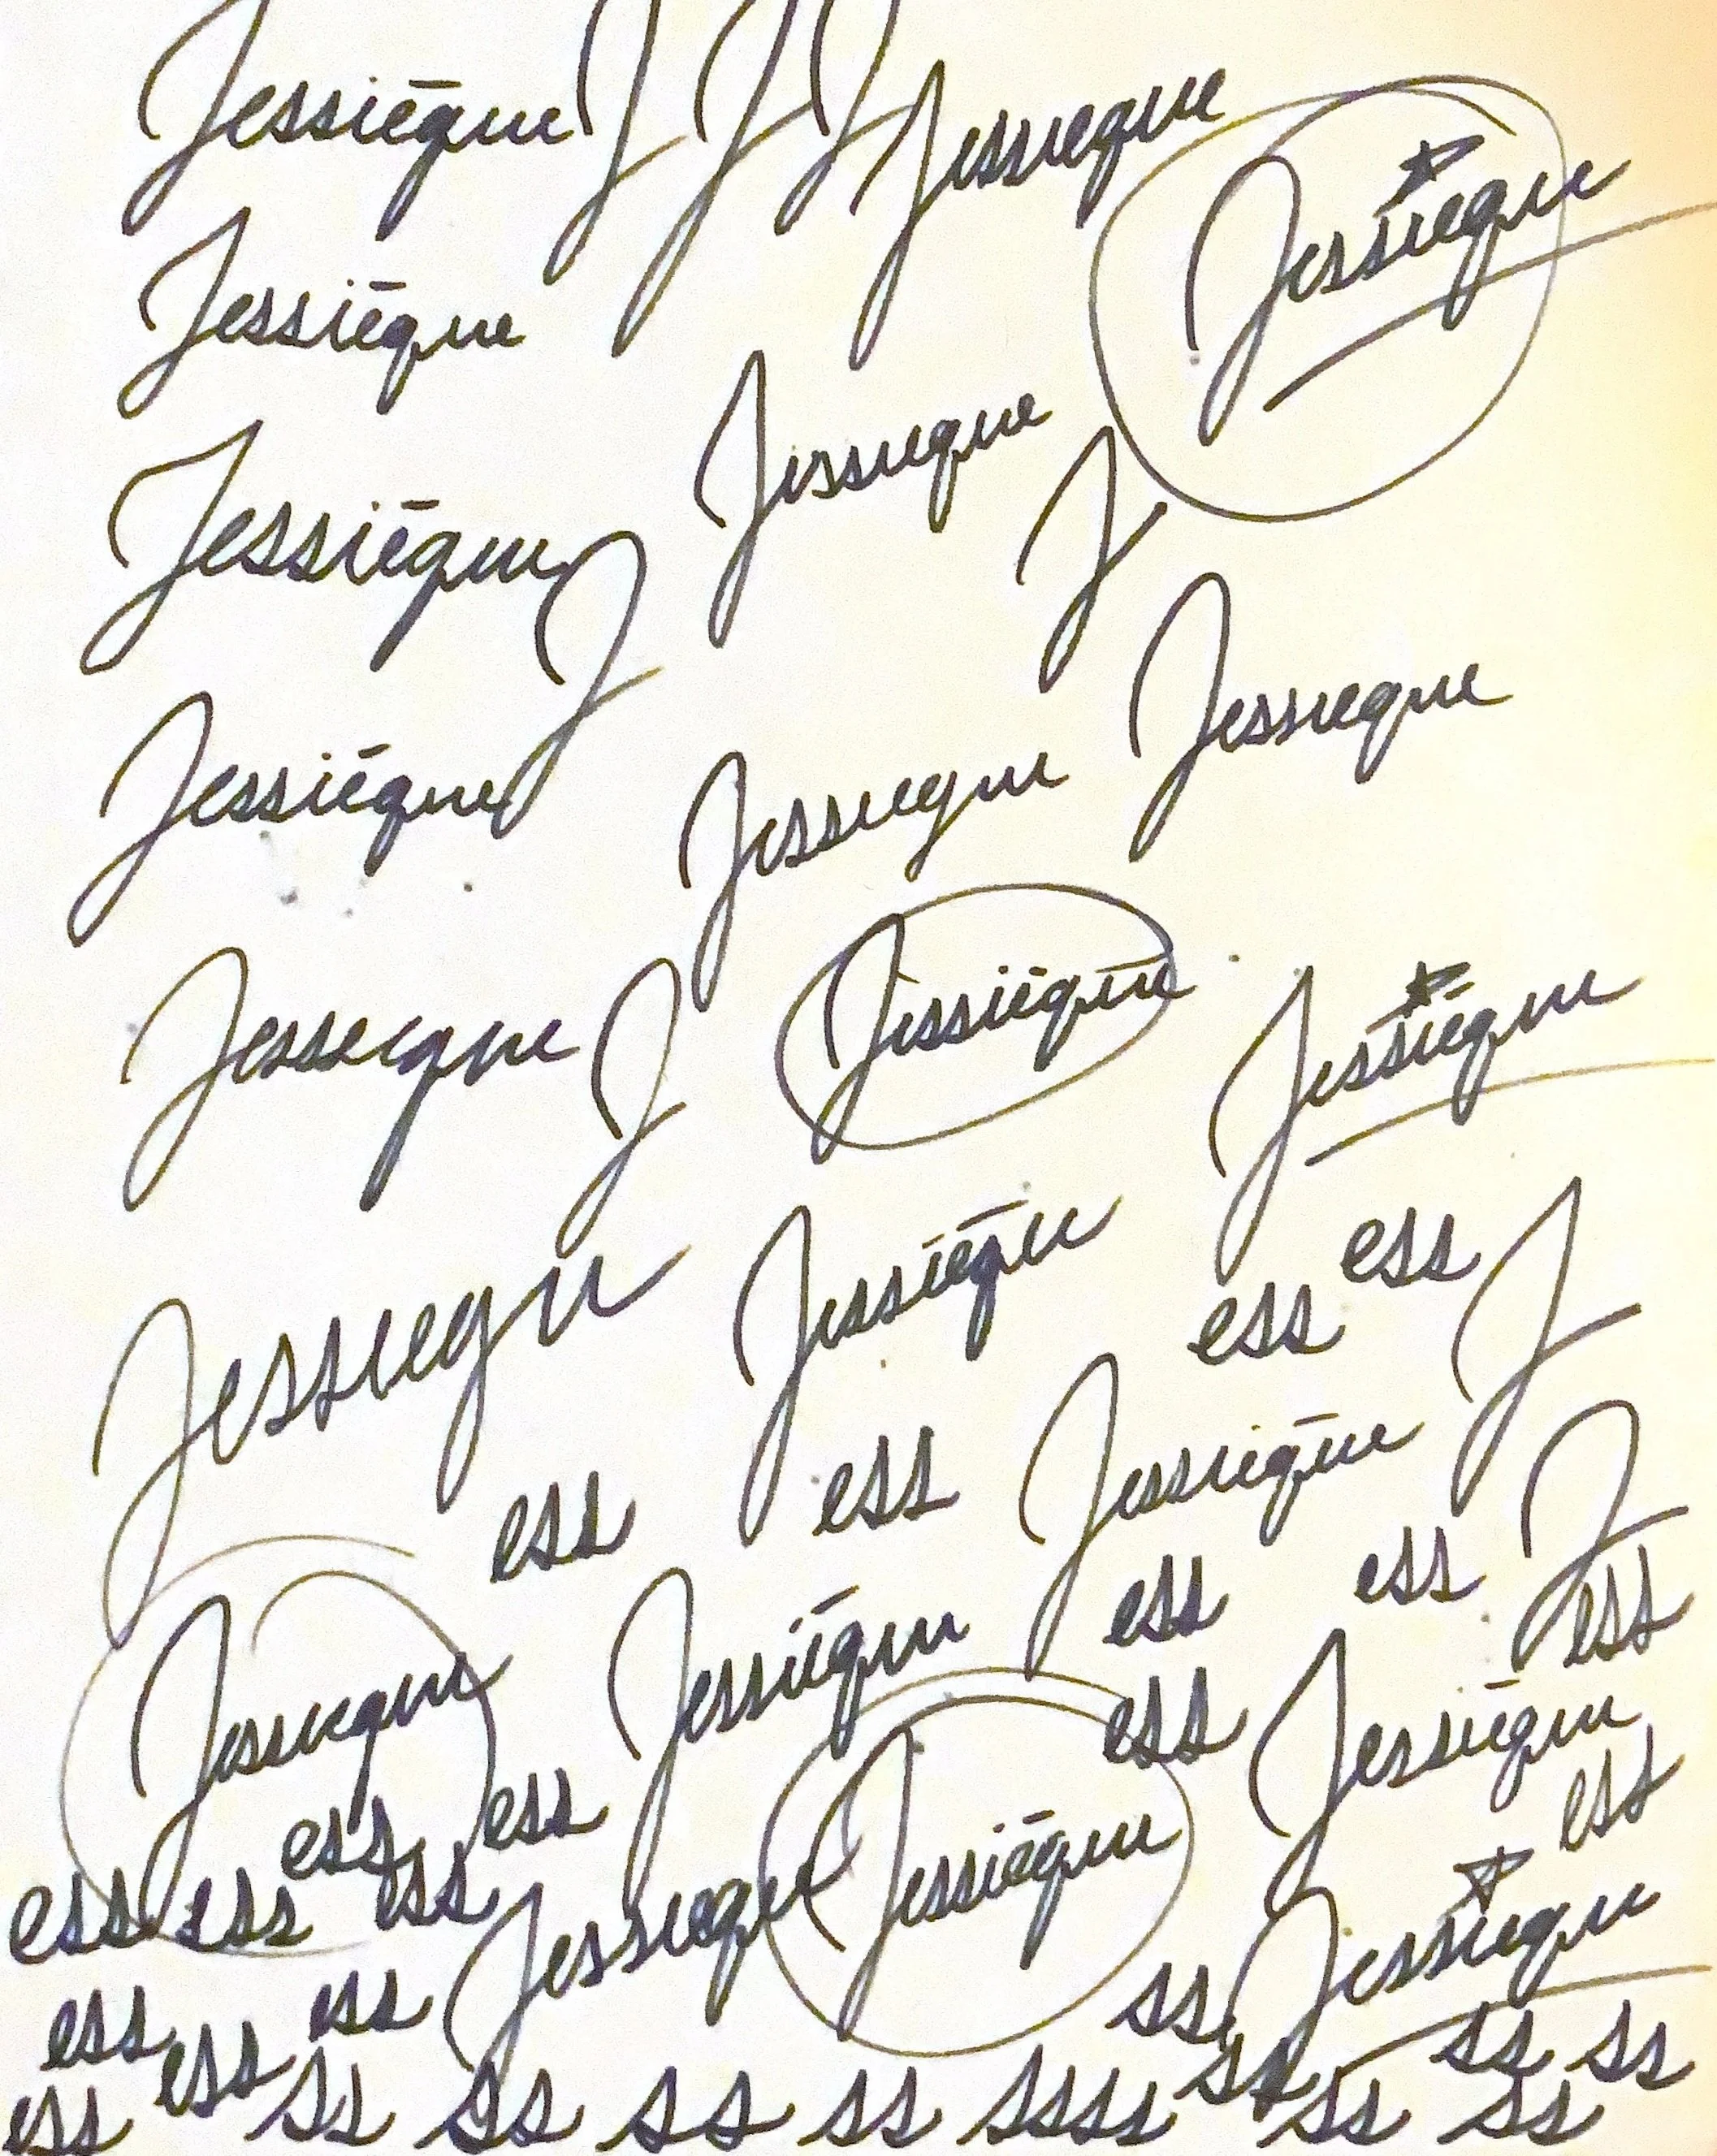 Jessiēque J J J Jessieque
Jessieque
Jessiēque
Jessieque
Jessiēque J
J
Jessiēque
Jessieque
Jessieque
Jesseique J
Jissiēque
Jessiēque
Jessiequ
Jessiēque
ess
ess J
ess
ess
Jessiēque
J
Jessieque
Jessiēque
ess
ess
ess
ess
Jessiēque
ess
ess
ess
ess
ess
ess
Jessieque
Jessiēque
Jessieque
ess
ess
ess
ss
ess
ss
ss
ss
ss
ssss
ss
ss
ss
ss
ss